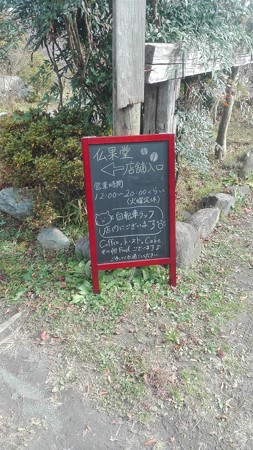 仏果堂
←店舗入口
営業時間
12:00〜20:00くらい
(火曜定休)
自転車ラック
店内にございます
Coffee,トースト,Cake
その他Foodございます♪